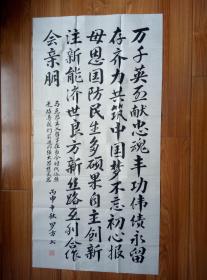 万千英烈献忠魂丰功伟绩永留
存齐力共筑中国梦不忘初心报
母恩国防民生多硕果自主创新
注新能济世良方新丝路互利合作
会亲朋
丙申年秋